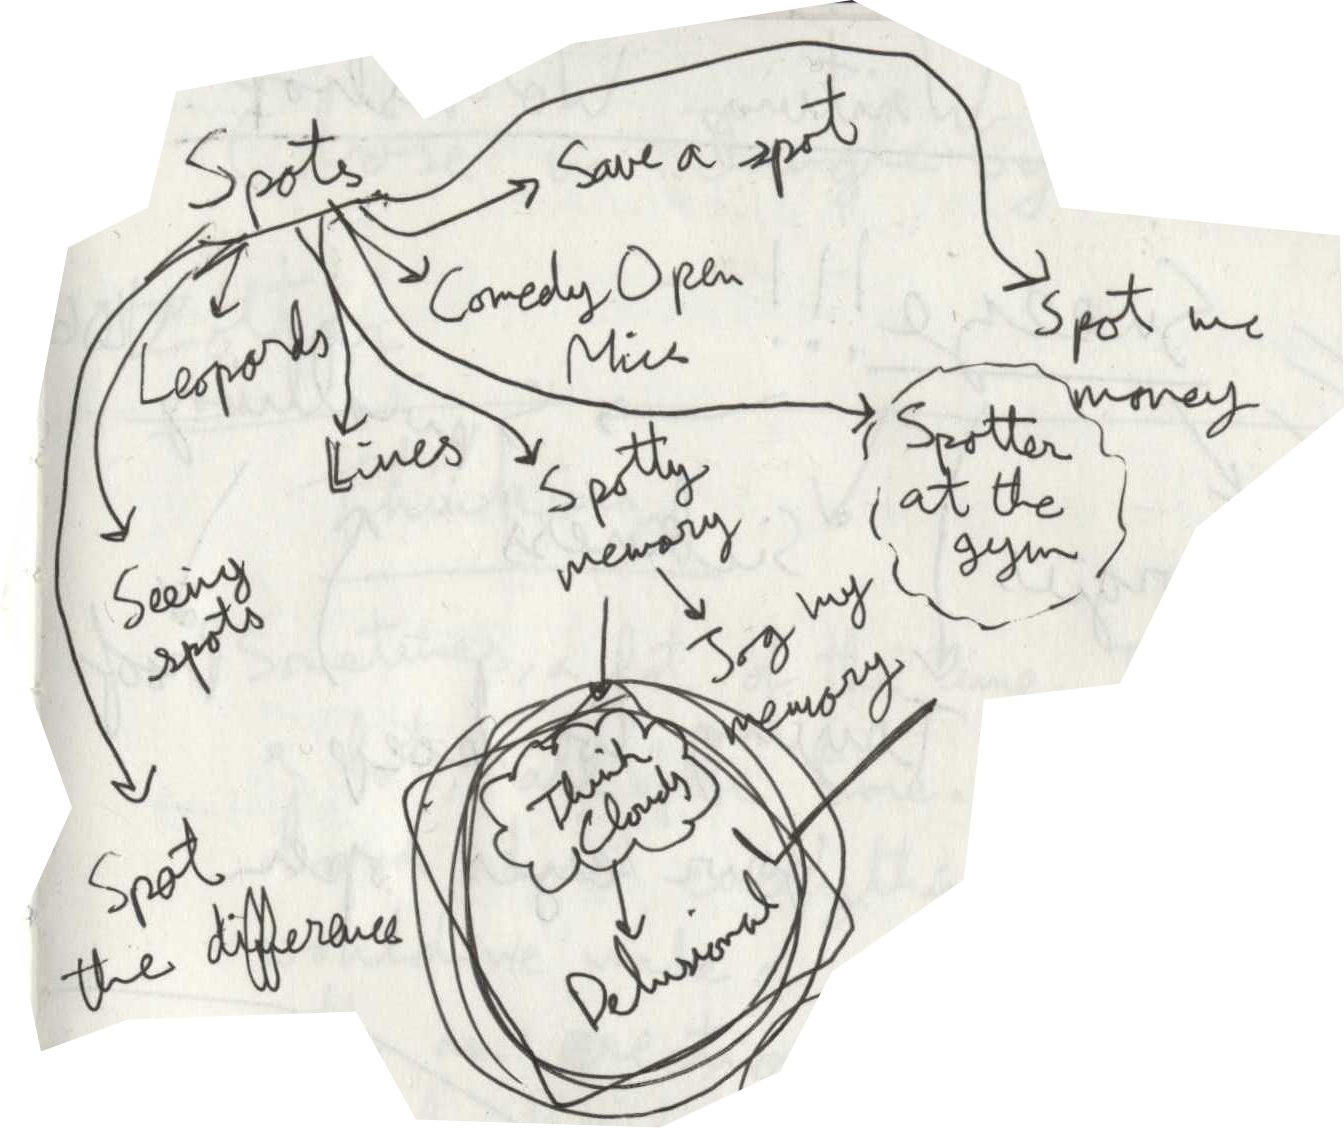 Spots
Save a spot
Comedy Open
Mics
Spot me
money
Leopards
Lines
Spotter
at the
gym
Spotty
memory
Seeing
spots
Jog my
memory
Think
Clouds
Delusional
Spot
the difference